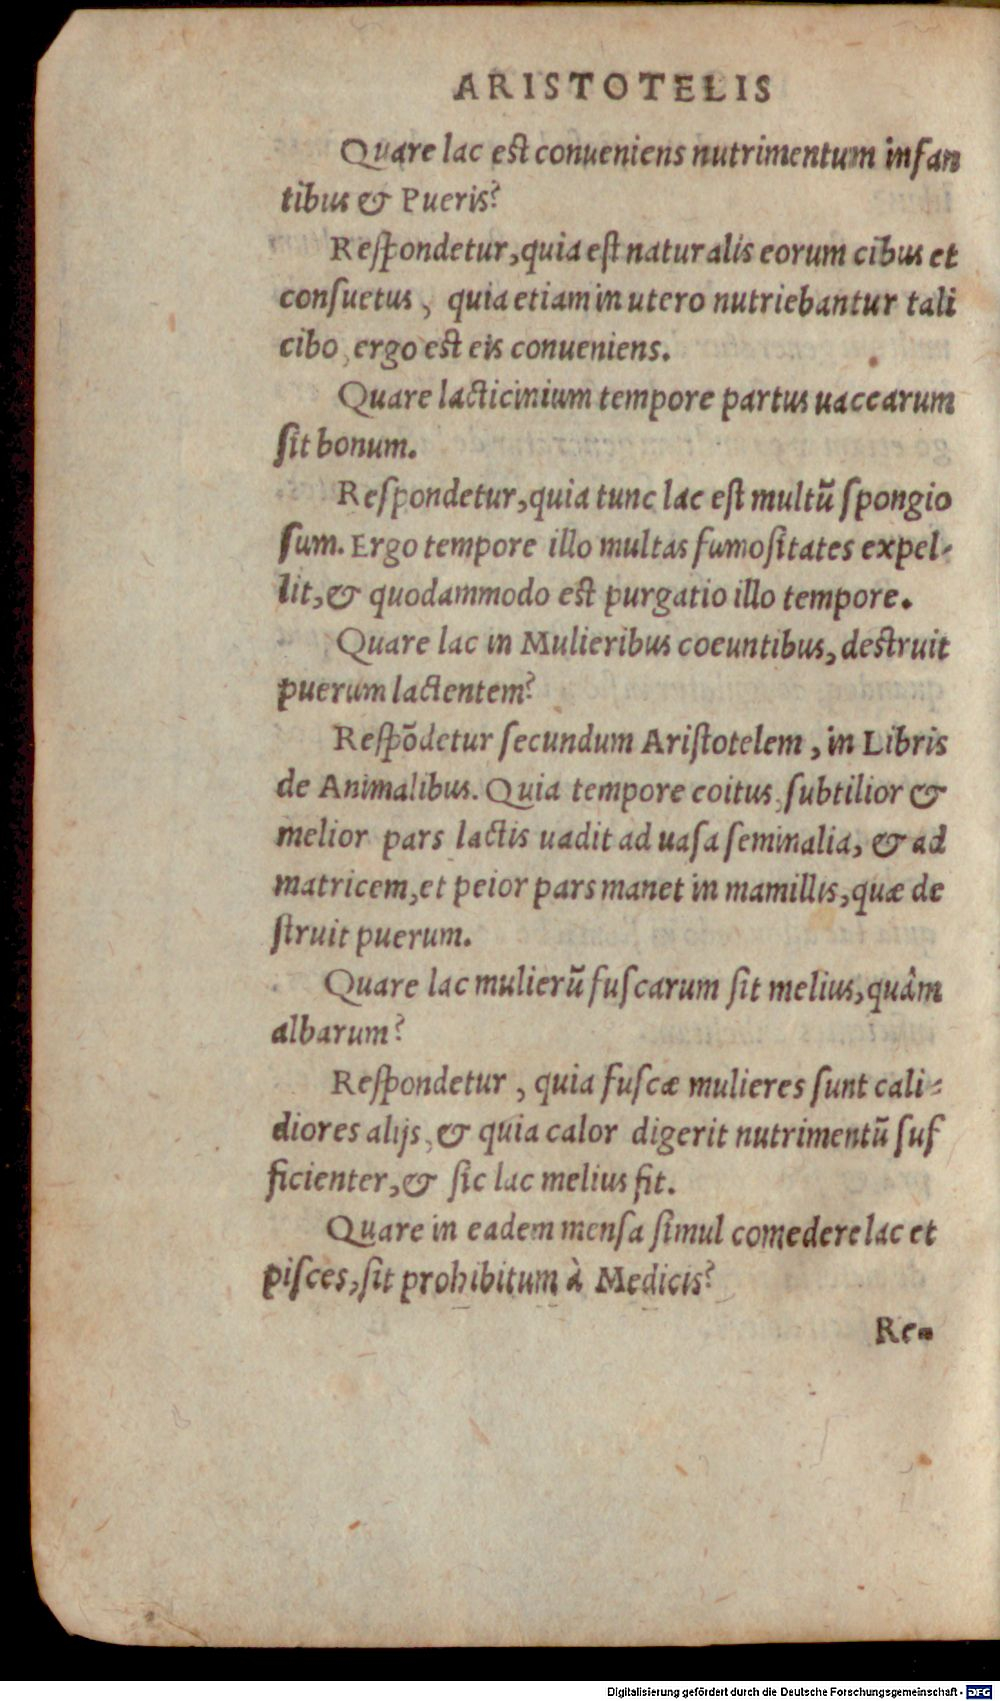 ARISTOTELIS
Quare lac est conueniens nutrimentum infan
tibus & Pueris?
Respondetur, quia est naturalis eorum cibus et
consuetus, quia etiam in utero nutriebantur tali
cibo, ergo est eis conueniens.
Quare lacticinium tempore partus uaccarum
sit bonum.
Respondetur, quia tunc lac est multū spongio
sum. Ergo tempore illo multas fumositates expel-
lit, & quodammodo est purgatio illo tempore.
Quare lac in Mulieribus coeuntibus, destruit
puerum lactentem?
Respōdetur secundum Aristotelem, in Libris
de Animalibus. Quia tempore coitus, subtilior &
melior pars lactis uadit ad uasa seminalia, & ad
matricem, et peior pars manet in mamillis, quæ de
struit puerum.
Quare lac mulierū fuscarum sit melius, quàm
albarum?
Respondetur, quia fuscæ mulieres sunt cali-
diores alijs, & quia calor digerit nutrimentū suf
ficienter, & sic lac melius fit.
Quare in eadem mensa simul comedere lac et
pisces, sit prohibitum à Medicis?
Re-
Digitalisierung gefördert durch die Deutsche Forschungsgemeinschaft - DFG